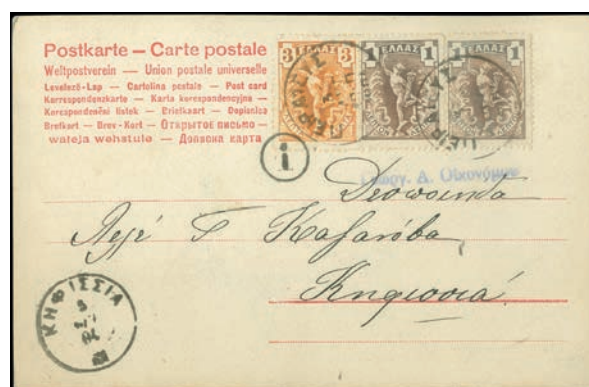 Postkarte — Carte postale
Weltpostverein — Union postale universelle
Levelező-Lap — Cartolina postale — Post card
Korrespondenzkarte — Karta korespondencyjna —
Korespondenční lístek — Briefkaart — Dopisnica
Brefkort — Brev-Kort — Открытое письмо —
— Дописна карта
3 ΕΛΛΑΣ 3
1 ΕΛΛΑΣ 1
1 ΕΛΛΑΣ 1
ΠΕΙΡΑΙΕΥΣ
ΠΕΙΡΑΙΕΥΣ
1
Α. Οἰκονόμου
Δεσποινίδα
Κηφισσιά
ΚΗΦΙΣΣΙΑ